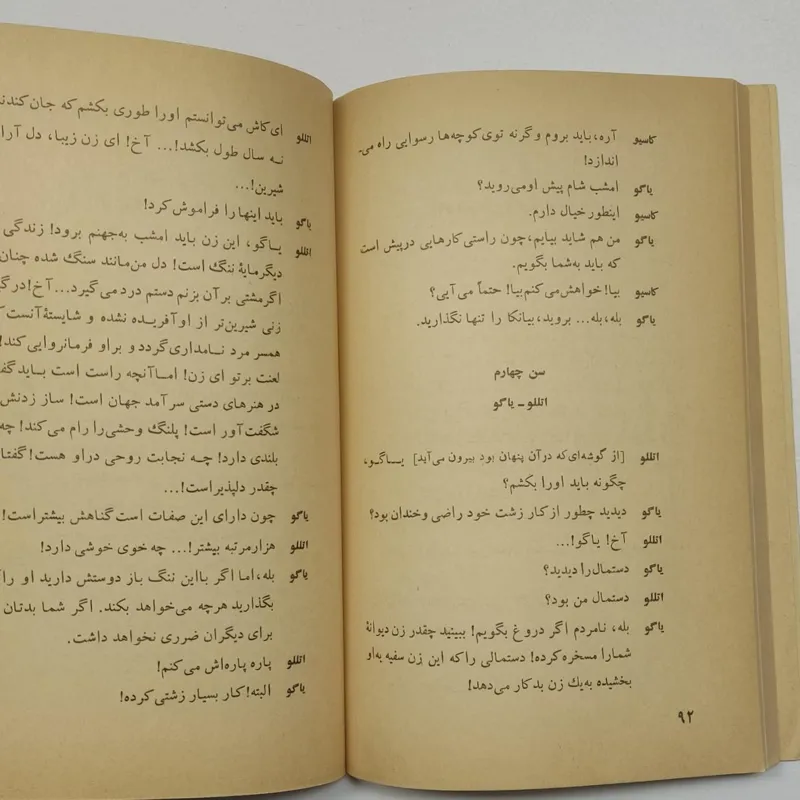 کاسیو آره، باید بروم وگرنه توی کوچه‌ها رسوایی راه می‌ـ
اندازد!
یاگو امشب شام پیش اومی‌روید؟
کاسیو اینطور خیال دارم.
یاگو من هم شاید بیایم، چون راستی کارهایی درپیش است
که باید به‌شما بگویم.
کاسیو بیا! خواهش می‌کنم بیا! حتماً می‌آیی؟
یاگو بله، بله... بروید، بیانکا را تنها نگذارید.
سن چهارم
اتللو ـ یاگو
اتللو [از گوشه‌ای که درآن پنهان بود بیرون می‌آید] یـاگـو،
چگونه باید اورا بکشم؟
یاگو دیدید چطور از کار زشت خود راضی وخندان بود؟
اتللو آخ! یاگو!...
یاگو دستمال را دیدید؟
اتللو دستمال من بود؟
یاگو بله، نامردم اگر دروغ بگویم! ببینید چقدر زن دیوانهٔ
شمارا مسخره کرده! دستمالی راکه این زن سفیه به‌او
بخشیده به‌یك زن بدکار می‌دهد!
۹۲
اتللو ای کاش می‌توانستم اورا طوری بکشم که جان کندنـ
نـه سال طول بکشد!... آخ! ای زن زیبا، دل آرا
شیرین!...
یاگو باید اینها را فراموش کرد!
اتللو یـاگو، این زن باید امشب به‌جهنم برود! زندگی
دیگر مایهٔ ننگ است! دل من مانند سنگ شده چنان
اگرمشتی برآن بزنم دستم درد می‌گیرد... آخ! درگـ
زنی شیرین‌تر از او آفریـده نشده و شایستهٔ آنست کـ
همسر مرد نـامداری گردد و براو فرمانروایی کند!
لعنت برتو ای زن! امـاآنچه راست است بـاید گفـ
در هنرهای دستی سرآمد جهان است! ساز زدنش
شگفت‌آور است! پلنگ وحشی‌را رام می‌کند! چه
بلندی دارد! چـه نجابت روحی دراو هست! گفتا
چقدر دلپذیراست!...
یاگو چون دارای این صفات است گناهش بیشتراست!
اتللو هزارمرتبه بیشتر!... چه خوی خوشی دارد!
یاگو بله، اما اگر بااین ننگ باز دوستش دارید او را
بگذارید هرچه می‌خواهد بکند. اگر شما بدتان
برای دیگران ضرری نخواهد داشت.
اتللو پاره پاره‌اش می‌کنم!
یاگو البته! کار بسیار زشتی کرده!